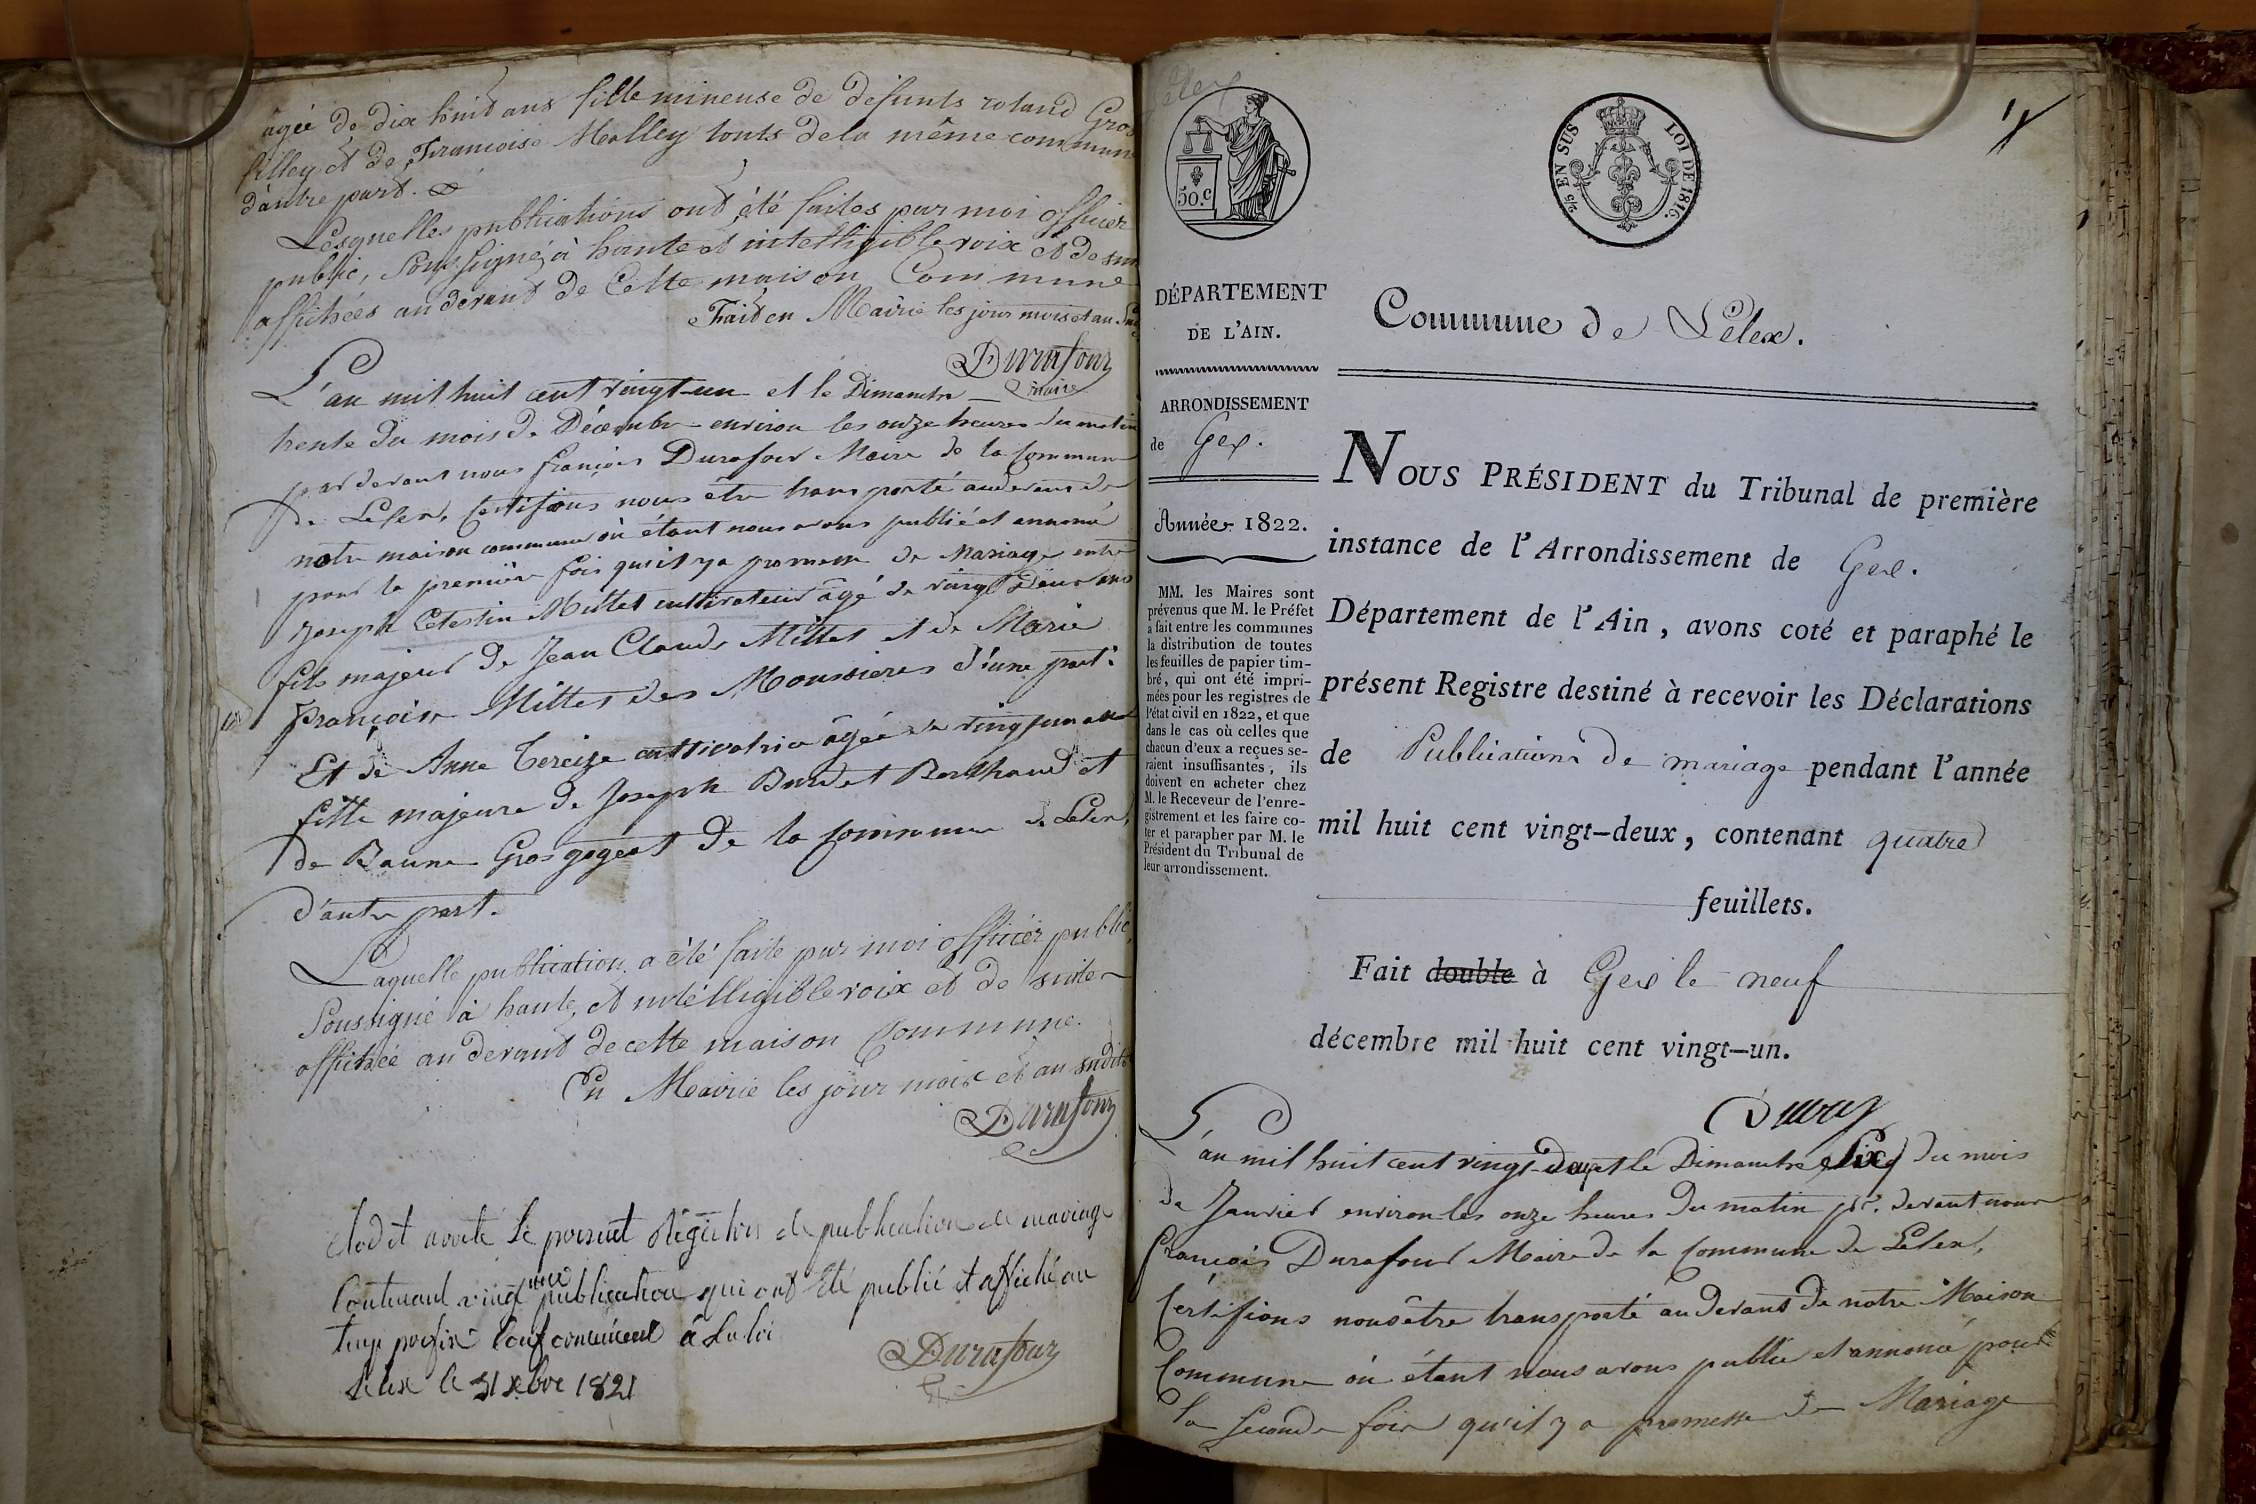 agée de dix huit ans fille mineuse de défunts roland Gros
filley et de Francoise Molley touts de la même commune
d'autre part.
Lesquelles publications ont été faites par moi officier
public, Soussigné, à haute et intelligible voix et de sui
affichées au devant de Cette maison Commune
Fait en Mairie les jour mois et an Sud
Durafour
maire
L'an mil huit cent vingt-un et le Dimanche
trente du mois de Décembre environ les onze heures du matin
par devant nous françois Durafour Maire de la Commune
de Lelex, Certifions nous être transporté au devant de
notre maison commune où étant nous avons publié et annoncé
pour la première fois qu'il y a promesse de Mariage entre
Joseph Celestin Millet cultivateur âgé de vingt Deux ans
fils majeur de Jean Claude Millet et de Marie
Françoise Millet des Moussieres d'une part.
Et de Anne Tereize cultivatrice âgée de vingt un ans
fille majeure de Joseph Burdet Berthaud et
de Baune Grosgogeat De la Commune de Lelex,
d'autre part.
Laquelle publication a été faite par moi officier public,
Soussigné à haute, et intélligible voix et de suite
affichée au devant de cette maison Commune.
En Mairie les jour mois et an susdits
Durafour
Clos et arreté le present Régistre de publication de mariage
Contenant vingt une publication qui ont été publié et affiché au
temp prefix Conformément à la loi
Lelex le 31 xbre 1821
Durafour
Lelex
50.c
2/5 EN SUS
LOI DE 1816.
DÉPARTEMENT
DE L'AIN.
Commune de Lélex.
ARRONDISSEMENT
de Gex.
Année 1822.
MM. les Maires sont
prévenus que M. le Préfet
a fait entre les communes
la distribution de toutes
les feuilles de papier tim-
bré, qui ont été impri-
mées pour les registres de
l'état civil en 1822, et que
dans le cas où celles que
chacun d'eux a reçues se-
raient insuffisantes, ils
doivent en acheter chez
M. le Receveur de l'enre-
gistrement et les faire co-
ter et parapher par M. le
Président du Tribunal de
leur arrondissement.
NOUS PRÉSIDENT du Tribunal de première
instance de l'Arrondissement de Gex.
Département de l'Ain, avons coté et paraphé le
présent Registre destiné à recevoir les Déclarations
de Publications de mariage pendant l'année
mil huit cent vingt-deux, contenant quatre
feuillets.
Fait double à Gex le neuf
décembre mil huit cent vingt-un.
L'an mil huit cent vingt-Deux et le Dimanche Six du mois
de Janvier environ les onze heures du matin pr. devant nous
François Durafour Maire de la Commune de Lelex,
Certifions nous être transporté au devant de notre Maison
Commune où étant nous avons publié et annoncé pour
la Seconde fois qu'il y a promesse de Mariage